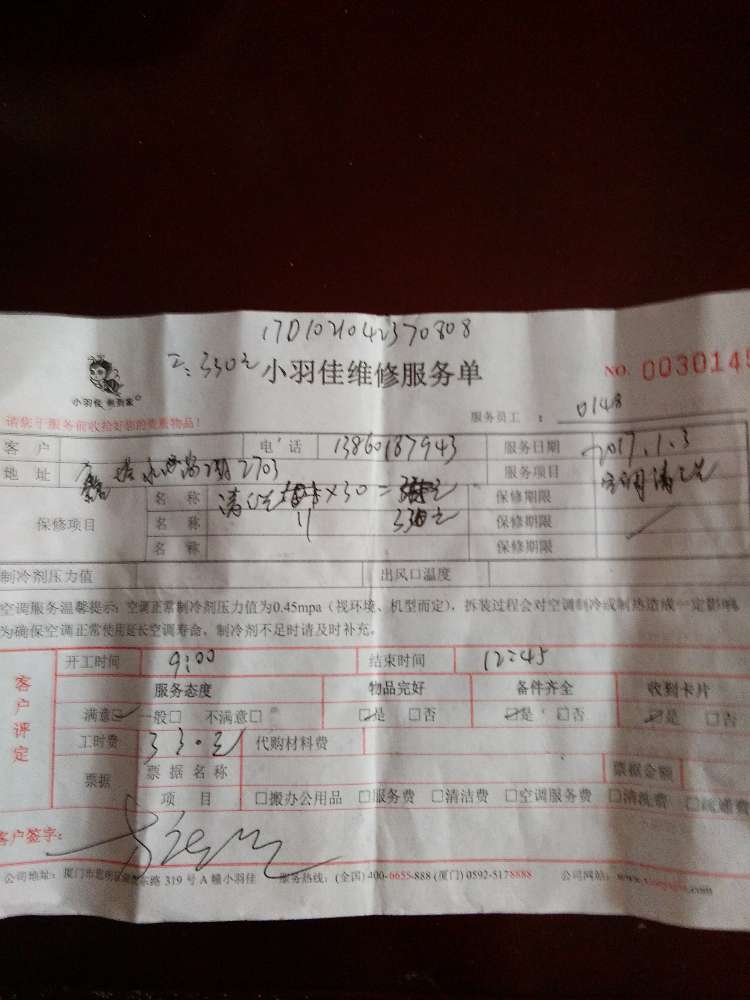 17D1021042370808
二:330元 小羽佳维修服务单 NO. 0030145
小羽佳 到家
请您于服务前收拾好您的贵重物品！ 服务员工 : 0148
客 户 电 话 13860187943 服务日期 2017.1.3
地 址 2703 服务项目 空调清洗
保修项目 名 称 清洗 ×30= 保修期限
名 称 11 330元 保修期限
名 称 保修期限
制冷剂压力值 出风口温度
空调服务温馨提示：空调正常制冷剂压力值为0.45mpa（视环境、机型而定），拆装过程会对空调制冷或制热造成一定影响，
为确保空调正常使用延长空调寿命，制冷剂不足时请及时补充。
客户评定 开工时间 9:00 结束时间 12:45
服务态度 物品完好 备件齐全 收到卡片
满意☑ 一般□ 不满意□ ☑是 □否 ☑是 □否 ☑是 □否
工时费 330元 代购材料费
票据 票 据 名 称 票据金额
项 目 □搬办公用品 □服务费 □清洁费 □空调服务费 □清洗费 □疏通费
客户签字：
公司地址：厦门市思明区 东路 319 号 A 幢小羽佳 服务热线：(全国) 400-6655-888 (厦门) 0592-5178888 公司网站：www. .com